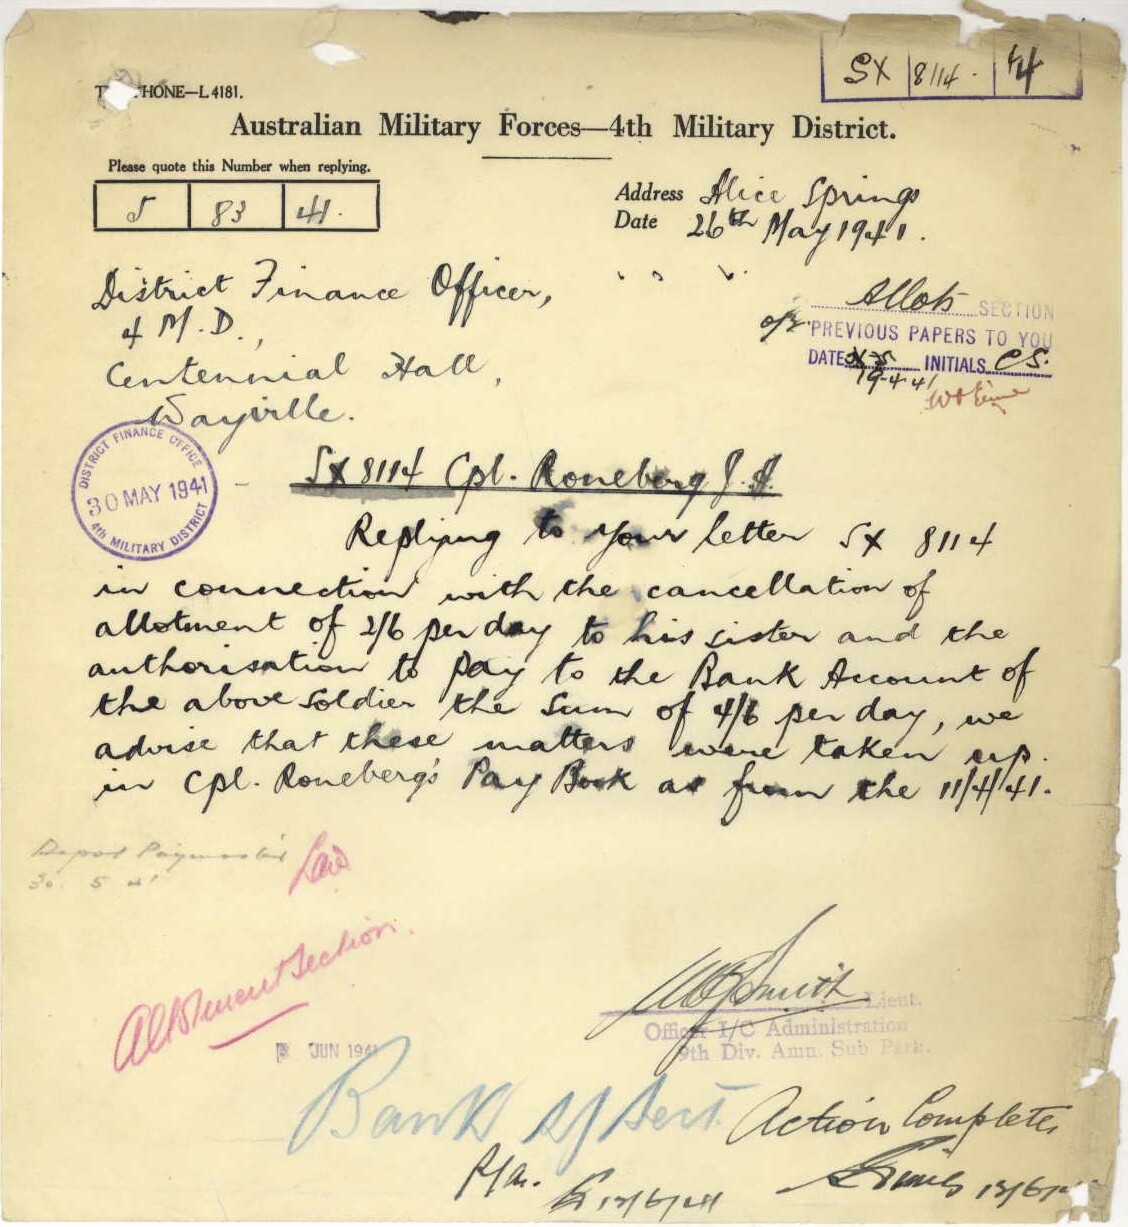 SX 8114 44
HONE—L 4181.
Australian Military Forces—4th Military District.
Please quote this Number when replying.
5 83 41.
Address Alice Springs
Date 26th May 1941.
District Finance Officer,
4 M.D.,
Centennial Hall,
Wayville.
Allots SECTION
PREVIOUS PAPERS TO YOU
DATE INITIALS CS.
19-4-41
DISTRICT FINANCE OFFICE
30 MAY 1941
4th MILITARY DISTRICT
SX 8114 Cpl. Roneberg J. A.
Replying to your letter SX 8114
in connection with the cancellation of
allotment of 2/6 per day to his sister and the
authorisation to pay to the Bank Account of
the above soldier the sum of 4/6 per day, we
advise that these matters were taken up
in Cpl. Roneberg's Pay Book as from the 11/4/41.
Depot Paymaster
30 5 41
Allotment Section.
Smith Lieut.
Officer I/C Administration
9th Div. Amn. Sub Park.
JUN 1941
Bank Sect.
Action Complete
P/A.
12/6/41
12/6/41